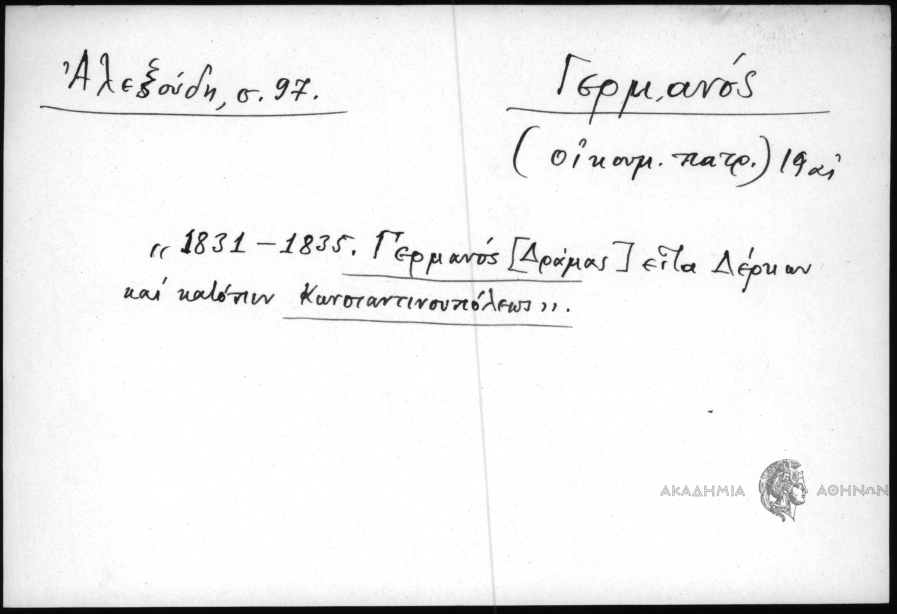 Ἀλεξούδη, σ. 97.
Γερμανός
(οἰκουμ. πατρ.) 19 αἰ
« 1831 – 1835. Γερμανός [Δράμας] εἶτα Δέρκων
καί κατόπιν Κωνσταντινουπόλεως».
ΑΚΑΔΗΜΙΑ ΑΘΗΝΩΝ